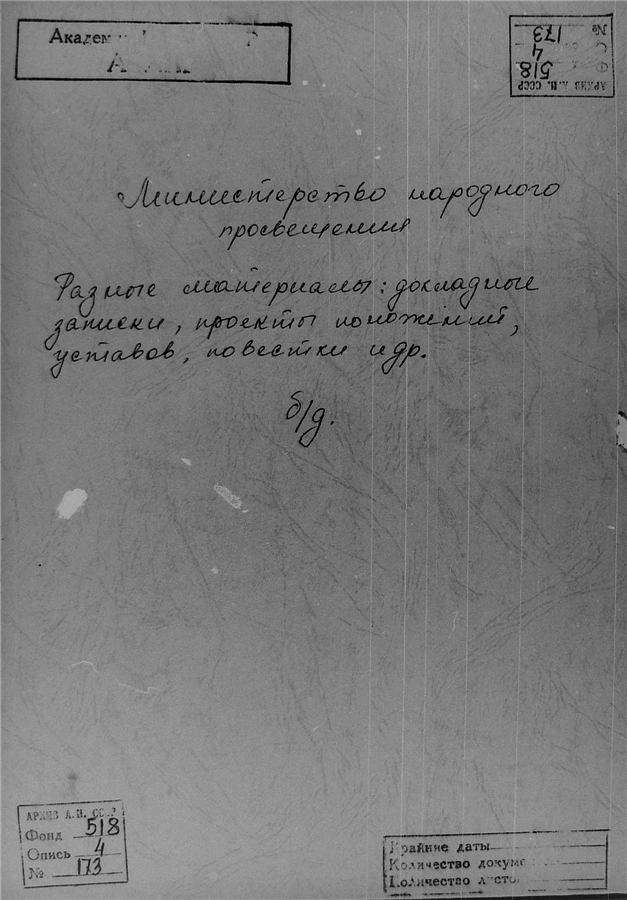 Министерство народного
просвещения
Разные материалы: докладные
записки, проекты положений,
уставов, повестки и др.
б/д.
АРХИВ А.Н. СССР
518
4
№ 173
АРХИВ А.Н. СССР
Фонд 518
Опись 4
№ 173
Крайние даты
Количество
Количество